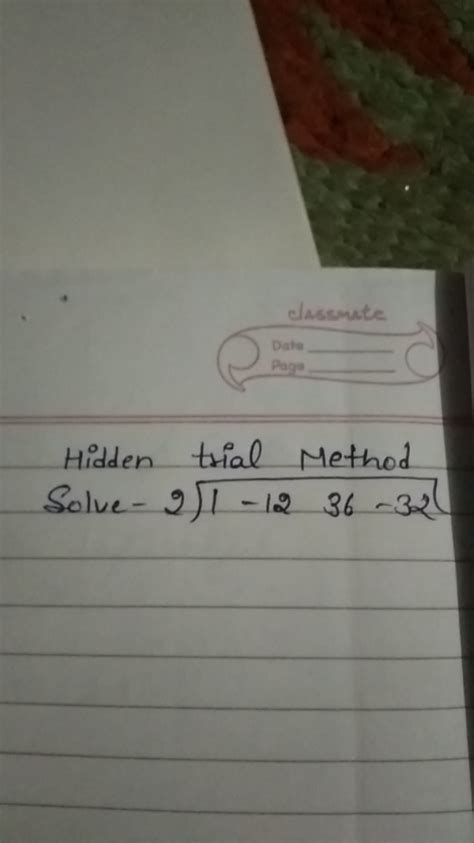 classmate
Date
Page
Hidden trial Method
Solve - 2)1 -12 36 -32(